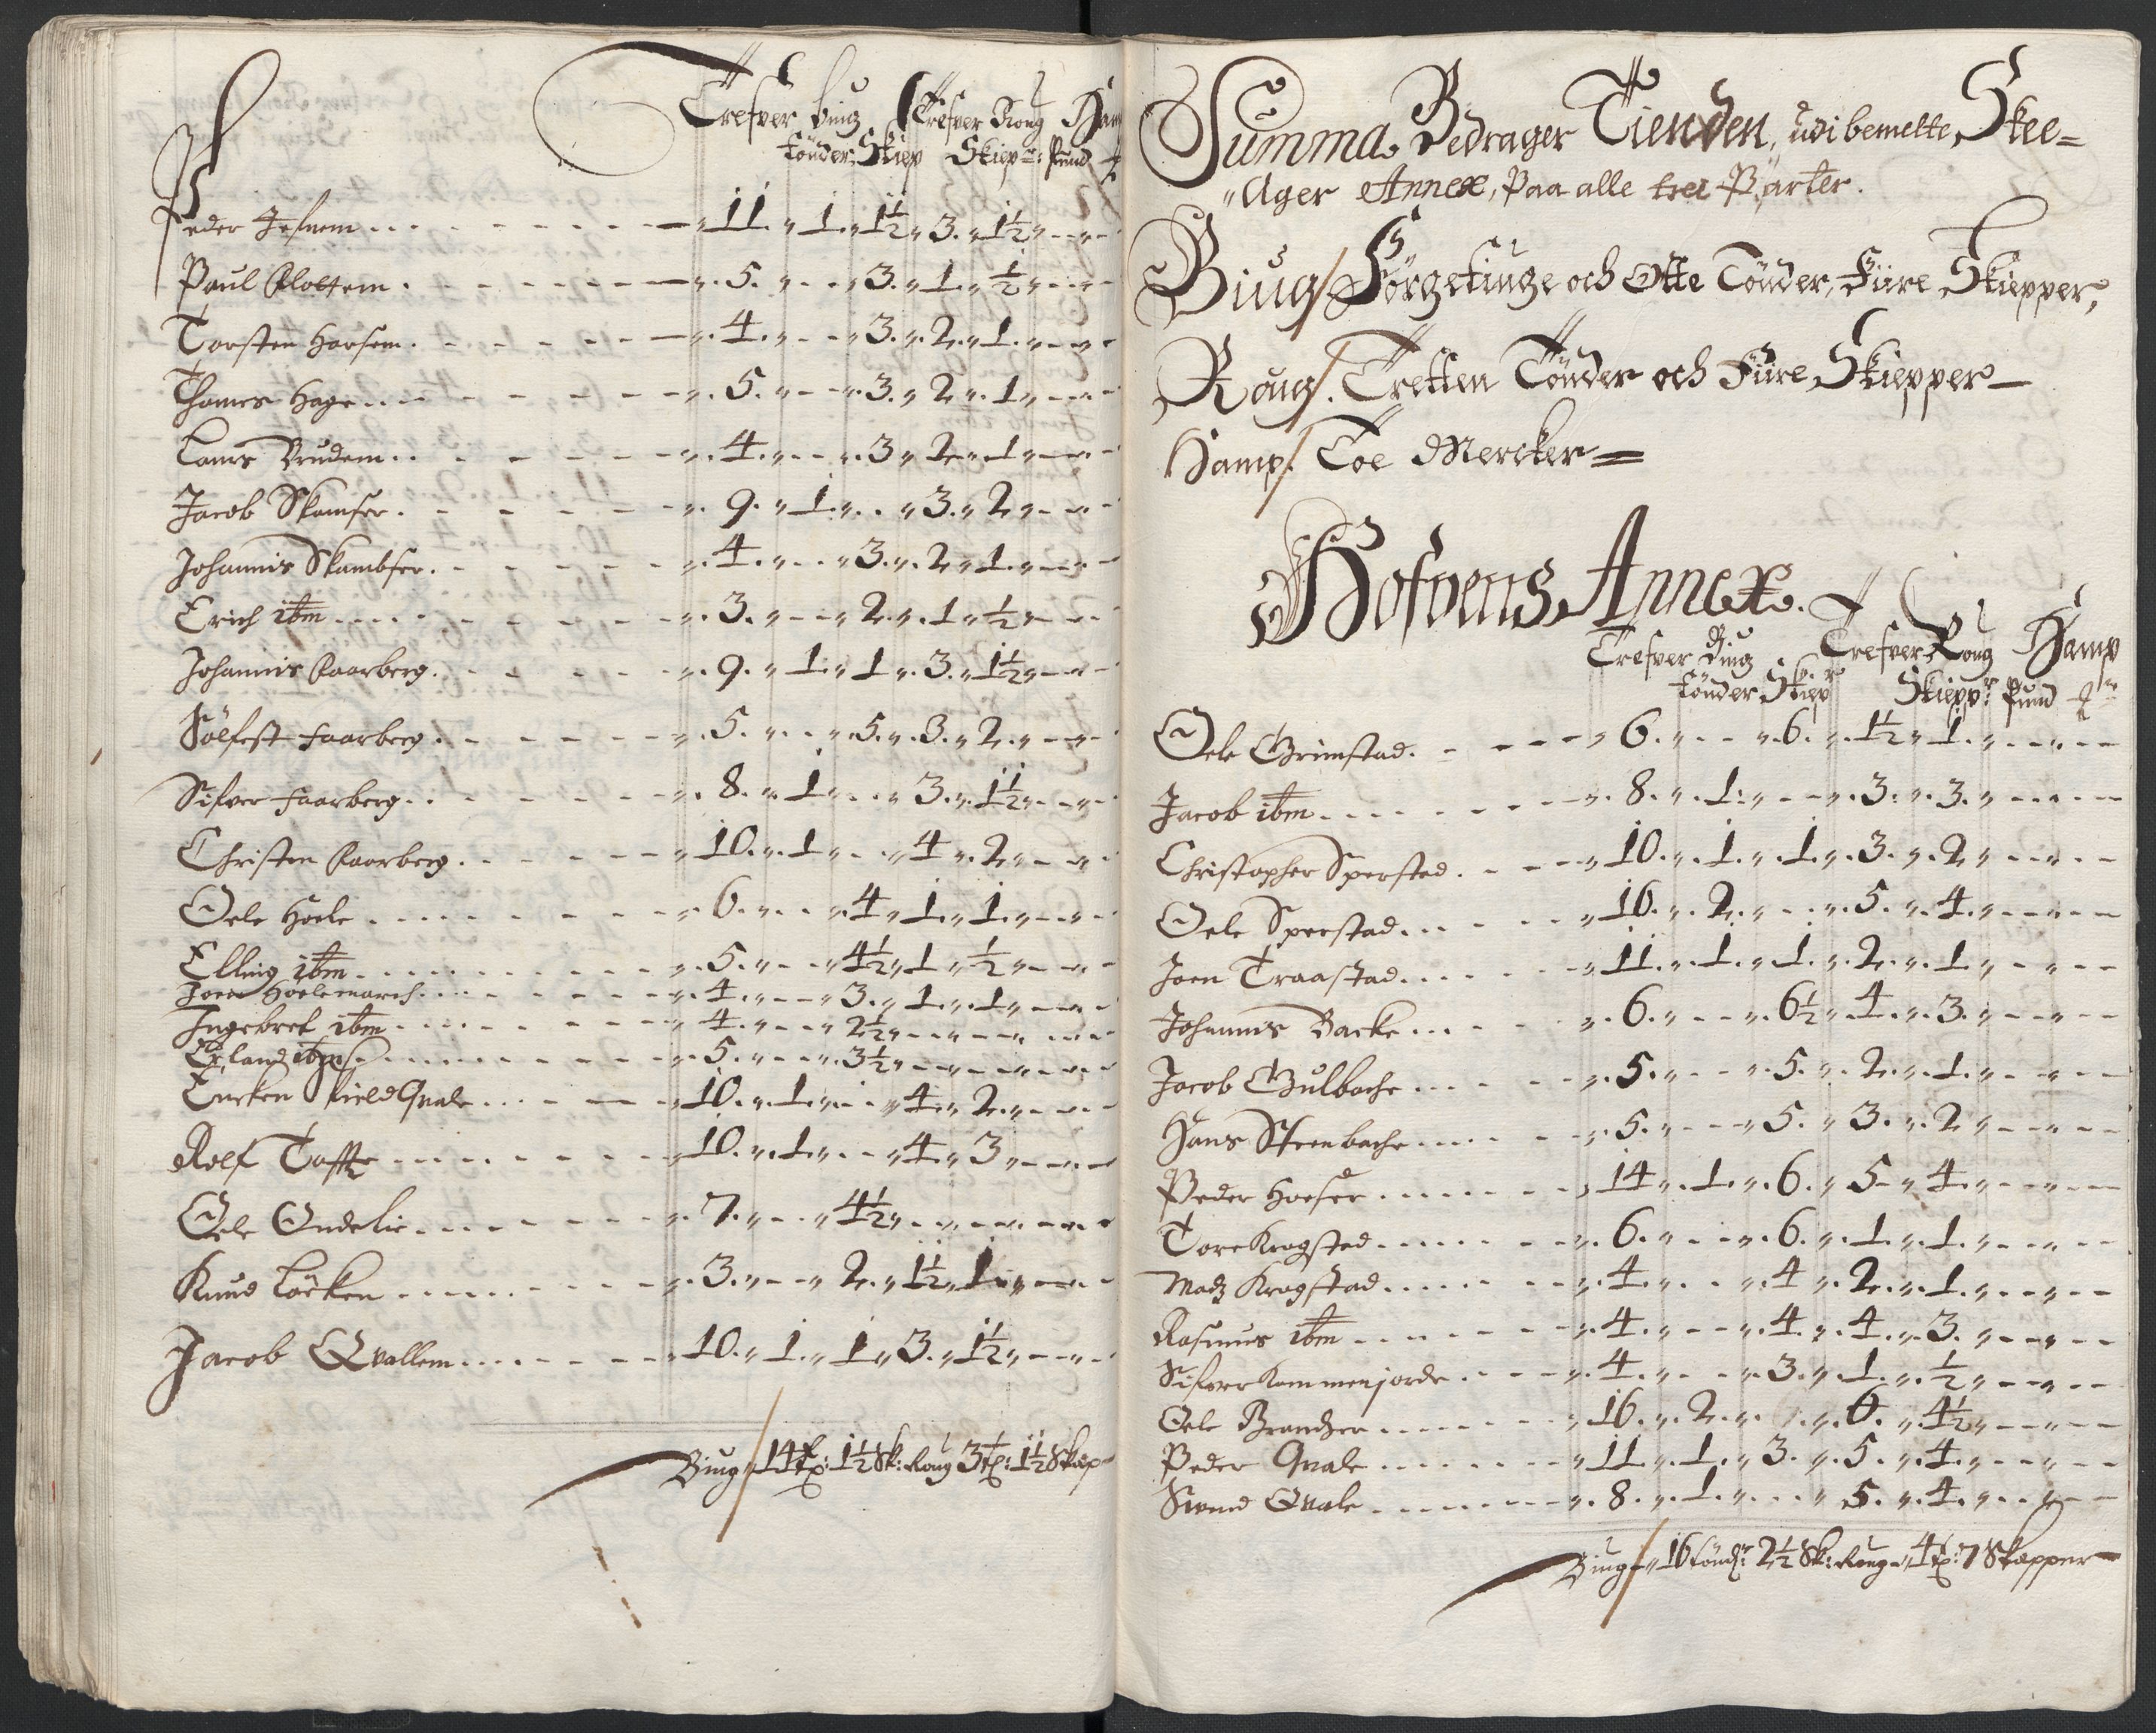 Trefver Biug Trefver Roug Ham
Tönder Skiep Skiepr: Pund
Peder Jesnem . . . 11. 1. 1½ 3. 1½
Paul Klottem . . . 5. 3. 1. ½
Torsten Horsem . . . 4. 3. 2. 1.
Thomes Hage . . . 5. 3. 2. 1
Laurs Brudem . . . 4. 3 2. 1
Jacob Skamfer . . . 9. 1. 3. 2
Johannis Skambfer . . . 4. 3. 2. 1.
Erich ibm . . . 3. 2. 1 ½
Johannis Faarberg . . . 9. 1. 1. 3. 1½
Sölfest Faarberg . . . 5. 5. 3. 2.
Sifver Faarberg . . . 8. 1. 3. 1½
Christen Faarberg . . . 10. 1. 4 2.
Oele Hoele . . . 6. 4 1. 1.
Elling ibm . . . 5. 4½ 1 ½
Joen Hoelemarch . . . 4. 3. 1. 1
Ingebret ibm . . . 4. 2½
Erland ibm . . . 5. 3½
Encken Field Qvale . . . 10. 1. 4. 2.
Rolf Toffte . . . 10. 1. 4. 3
Oele Ondelie . . . 7. 4½
Knud Löcken . . . 3. 2. 1½ 1.
Jacob Qvallem . . . 10. 1. 1 3. 1½
Biug 14 tr: 1½ Sk: Roug 3 tr: 1½ Skiep
Summa Bedrager Tienden, udi bemelte Skee=
Ager Annex, Paa alle trei Parter.
Biug / Förgetiuge och Otte Tönder, Fiire Skiepper,
Roug / Tretten Tönder och Fiire Skiepper
Hamp / Toe Mercker =
Hofvens Annex.
Trefver Biug Trefver Roug Hamp
Tönder Skiepr Skiepr: Pund
Oele Grimstad . . . 6. 6. 1½ 1.
Jacob ibm . . . 8. 1. 3. 3.
Christopher Sperstad . . . 10. 1. 1. 3. 2
Oele Sperstad . . . 16. 2. 5. 4.
Joen Traastad . . . 11. 1. 1. 2. 1.
Johannis Backe . . . 6. 6½ 4. 3.
Jacob Gulbache . . . 5. 5. 2. 1.
Hans Steenbache . . . 5. 5. 3. 2
Peder Hoeser . . . 14. 1. 6. 5 4.
Tore Kragstad . . . 6. 6. 1. 1.
Madz Kragstad . . . 4. 4 2. 1.
Rasmus ibm . . . 4. 4. 4. 3.
Sifver Kammenjorde . . . 4. 3. 1. ½
Oele Brandzer . . . 16. 2. 6. 4½
Peder Qvale . . . 11. 1. 3. 5. 4.
Svend Qvale . . . 8. 1. 5. 4.
Biug 16 töndr: 2½ Sk: Roug 4 tr: 7 Skepper